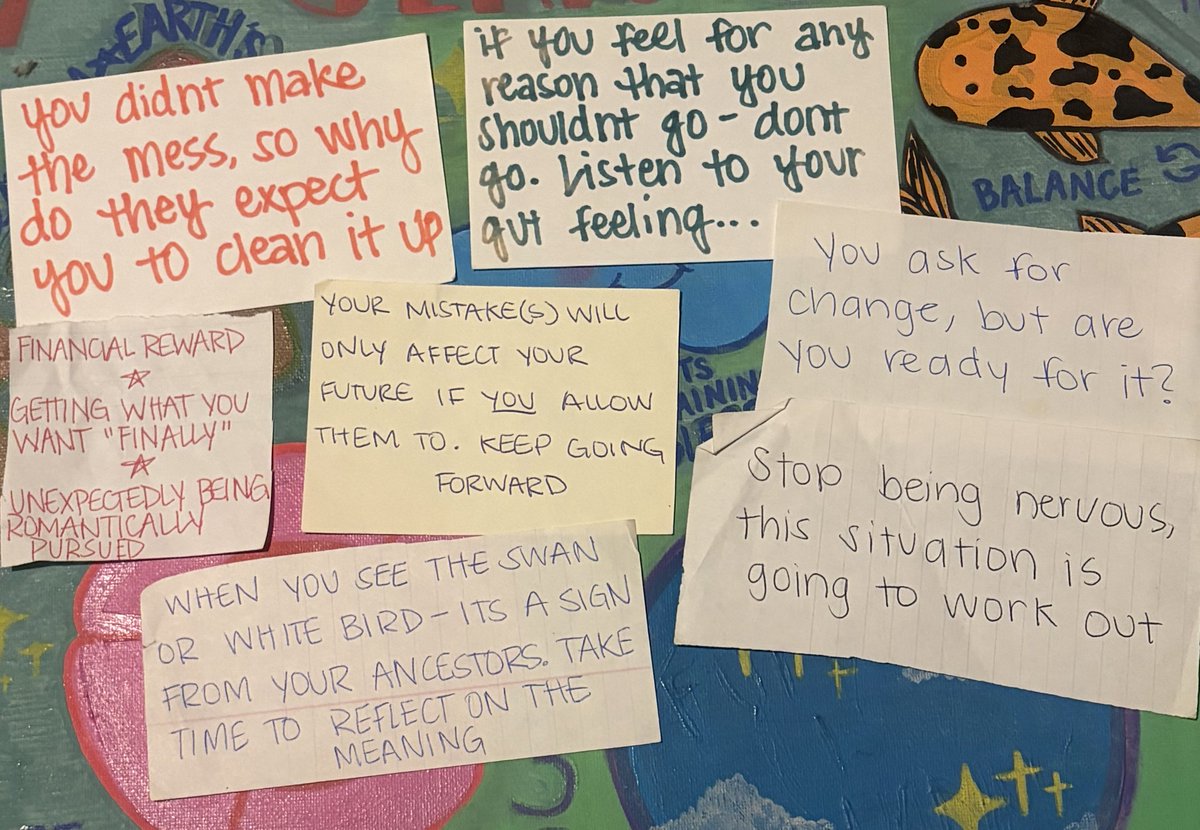 EARTH'S
you didnt make
the mess, so why
do they expect
you to clean it up
if you feel for any
reason that you
shouldnt go - dont
go. Listen to your
gut feeling...
BALANCE
You ask for
change, but are
you ready for it?
FINANCIAL REWARD
GETTING WHAT YOU
WANT "FINALLY"
UNEXPECTEDLY BEING
ROMANTICALLY
PURSUED
YOUR MISTAKE(S) WILL
ONLY AFFECT YOUR
FUTURE IF YOU ALLOW
THEM TO. KEEP GOING
FORWARD
Stop being nervous,
this situation is
going to work out
WHEN YOU SEE THE SWAN
OR WHITE BIRD - ITS A SIGN
FROM YOUR ANCESTORS. TAKE
TIME TO REFLECT ON THE
MEANING